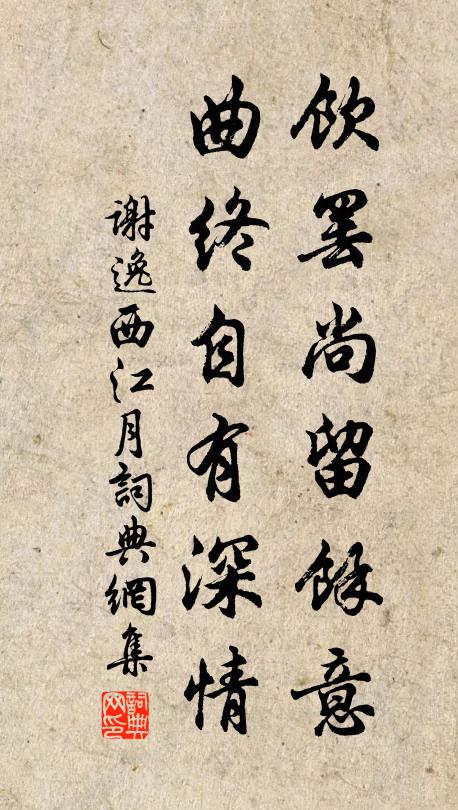 飲罷尚留餘意
曲終自有深情
謝逸西江月詞典網集
詞典網印